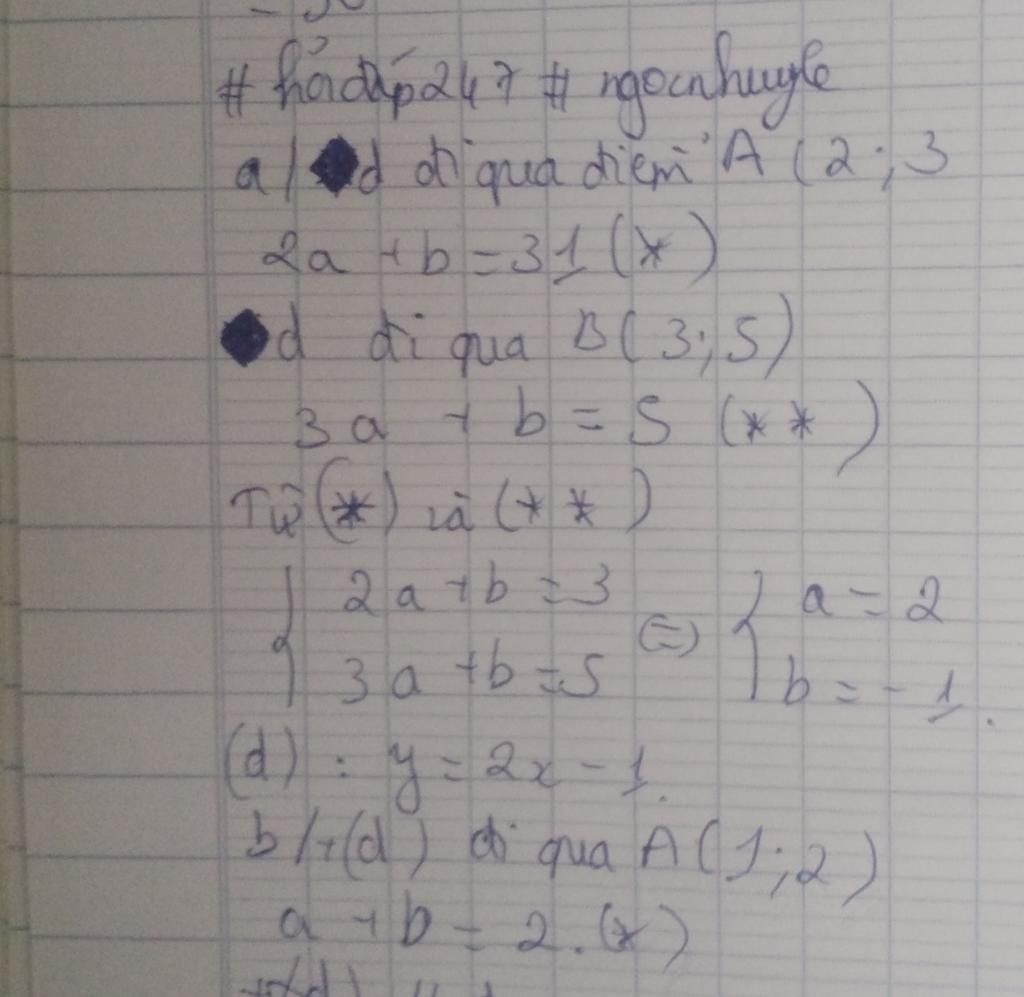 # hỏi đáp 247 # ngocnhuyle
a/ d đi qua điểm A (2; 3
2a + b = 31 (*)
d đi qua B(3; 5)
3a + b = 5 (**)
Từ (*) và (**)
{ 2a + b = 3 (=) { a = 2
3a + b = 5 b = -1.
(d) : y = 2x - 1.
b/ +(d) đi qua A(1; 2)
a + b = 2. (*)